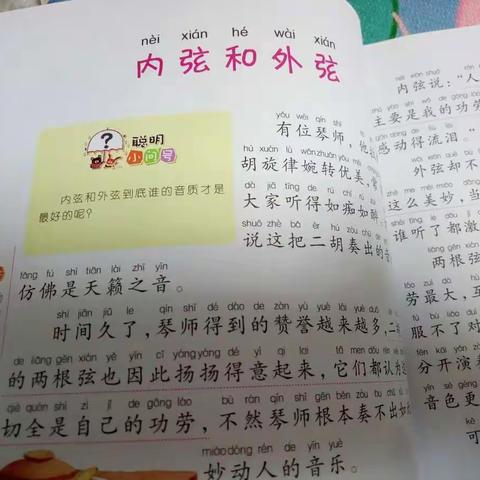 nèi xián hé wài xián
内弦和外弦
聪明
小问号
内弦和外弦到底谁的音质才是
最好的呢？
yǒu wèi qín shī
有位琴师，他
hú xuán lǜ wǎn zhuǎn yōu měi
胡旋律婉转优美，常
dà jiā tīng de rú chī rú
大家听得如痴如醉
shuō zhè bǎ èr hú zòu chū de
说这把二胡奏出的音
fǎng fú shì tiān lài zhī yīn
仿佛是天籁之音。
shí jiān jiǔ le qín shī dé dào de zàn yù yuè lái yuè duō èr
时间久了，琴师得到的赞誉越来越多，二
de liǎng gēn xián yě yīn cǐ yáng yáng dé yì qǐ lai tā men dōu rèn
的两根弦也因此扬扬得意起来，它们都认为这
qiè quán shì zì jǐ de gōng láo bù rán qín shī gēn běn zòu bù chū
切全是自己的功劳，不然琴师根本奏不出如
miào dòng rén de yīn yuè
妙动人的音乐。
nèi xián shuō
内弦说：“人
zhǔ yào shì wǒ de gōng láo
主要是我的功劳
gǎn dòng de liú lèi
感动得流泪。”
wài xián què bù
外弦却不
zhè me měi miào
这么美妙，当
shuí tīng le dōu jī
谁听了都激
liǎng gēn xián
两根弦
láo zuì dà
劳最大，互
fú bù liǎo duì
服不了对
fēn kāi yǎn zòu
分开演奏
yīn sè gèng
音色更
kě
可